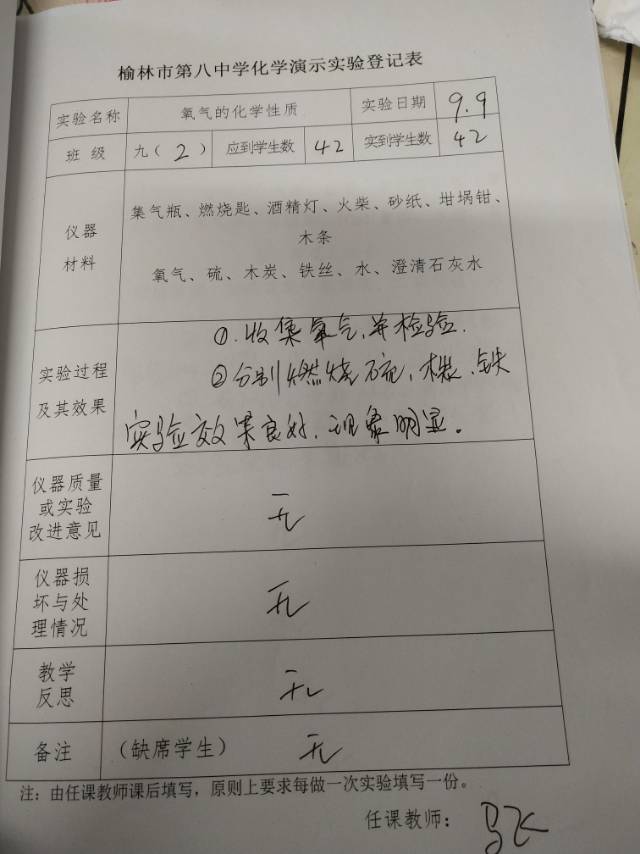 榆林市第八中学化学演示实验登记表
实验名称 氧气的化学性质 实验日期 9.9
班 级 九（2） 应到学生数 42 实到学生数 42
仪器
材料
集气瓶、燃烧匙、酒精灯、火柴、砂纸、坩埚钳、
木条
氧气、硫、木炭、铁丝、水、澄清石灰水
实验过程
及其效果
①.收集氧气,并检验.
②分别燃烧硫、铁
实验效果良好.现象明显。
仪器质量
或实验
改进意见
无
仪器损
坏与处
理情况
无
教学
反思
无
备注 （缺席学生） 无
注：由任课教师课后填写，原则上要求每做一次实验填写一份。
任课教师：